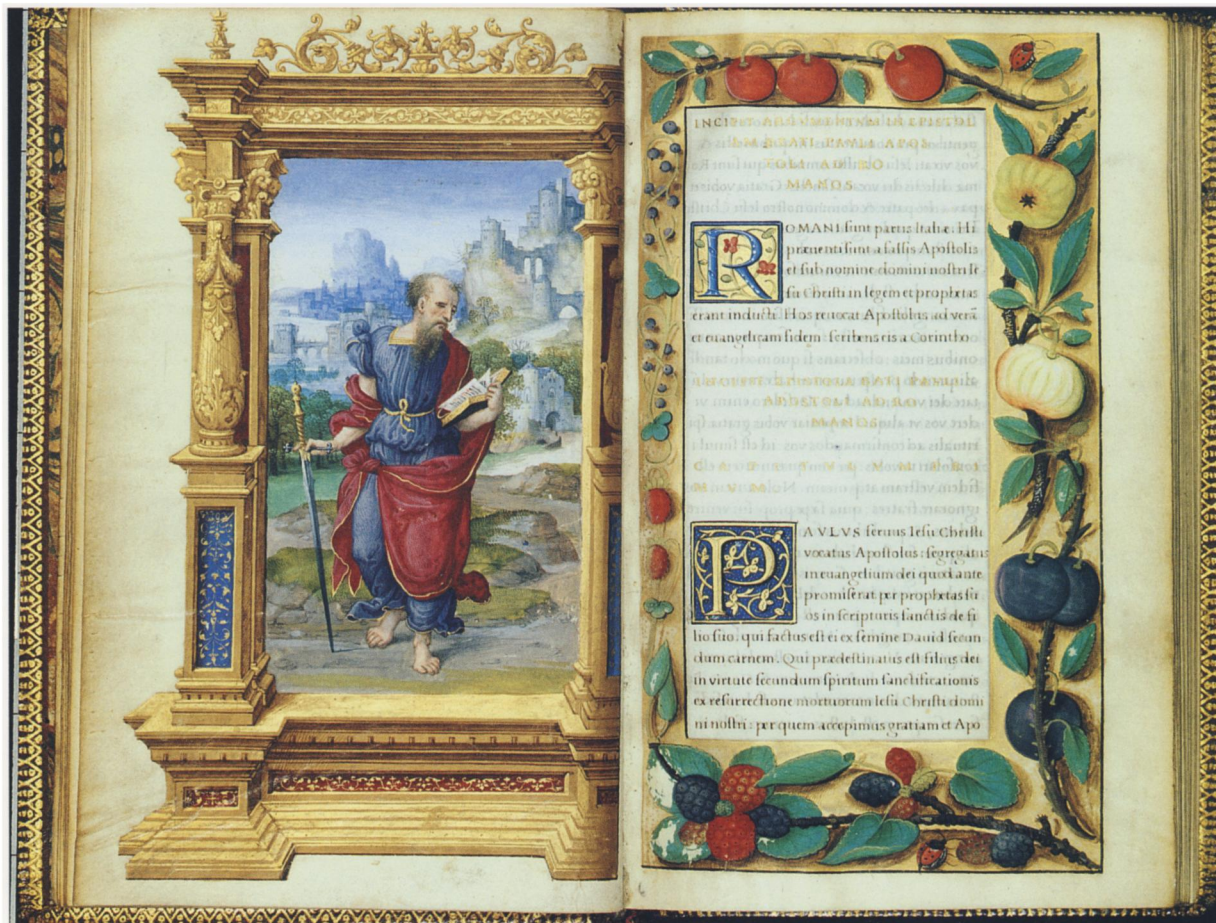 INCIPIT ARGUMENTUM IN EPISTOL
AM BEATI PAULI APOS
TOLI AD RO
MANOS
ROMANI sunt partis Italiæ. Hi
præuenti sunt a falsis Apostolis
et sub nomine domini nostri Ie
su Christi in legem et prophetas
erant inducti. Hos reuocat Apostolus ad verā
et euangelicam fidem: scribens eis a Corintho
INCIPIT EPISTOLA BEATI PAULI
APOSTOLI AD RO
MANOS
CAPITULUM PRI
MUM
PAVLVS seruus Iesu Christi
vocatus Apostolus: segregatus
in euangelium dei quod ante
promiserat per prophetas su
os in scripturis sanctis de fi
lio suo, qui factus est ei ex semine Dauid secun
dum carnem. Qui prædestinatus est filius dei
in virtute secundum spiritum sanctificationis
ex resurrectione mortuorum Iesu Christi domi
ni nostri: per quem accepimus gratiam et Apo